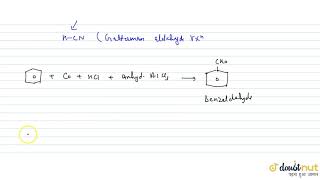 H-CN (Gatterman aldehyde rxn
+ CO + HCl + anhyd. AlCl3 →
CHO
Benzaldehyde
doubtnut